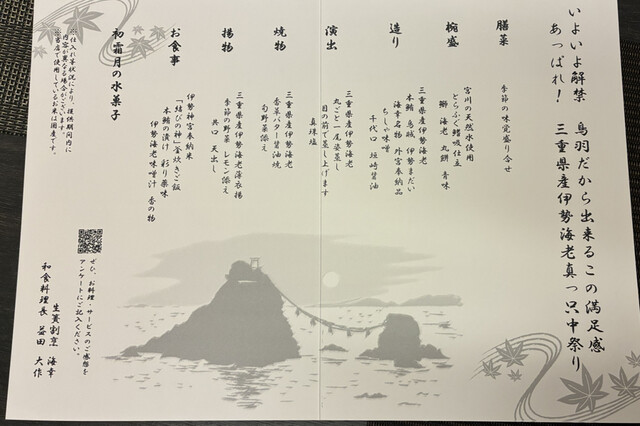 いよいよ解禁 鳥羽だから出来るこの満足感
あっぱれ! 三重県産伊勢海老真っ只中祭り
膳菜
季節の味覚盛り合せ
椀盛
宮川の天然水使用
とらふぐ鰭吸仕立
鰤 海老 丸餅 青味
造り
三重県産伊勢海老
本鮪 鳥城 伊勢まだい
海幸名物 外宮奉納品
ちしゃ味噌
千代口 垣崎醤油
演出
三重県産伊勢海老
丸ごと一尾姿蒸し
目の前で蒸し上げます
真珠塩
焼物
三重県産伊勢海老
香草バター醤油焼
旬野菜添え
揚物
三重県産伊勢海老薄衣揚
季節の野菜 レモン添え
共口 天出し
お食事
伊勢神宮奉納米
「結びの神」釜炊きご飯
本鮪の漬け 彩り薬味
伊勢海老味噌汁 香の物
初霜月の水菓子
※仕入れ等状況により、提供期間内に
内容が異なる場合がございます。
※当店で使用しているお米は国産です。
ぜひ、お料理・サービスのご感想を
アンケートにご記入ください。
生簀割烹 海幸
和食料理長 益田 大作